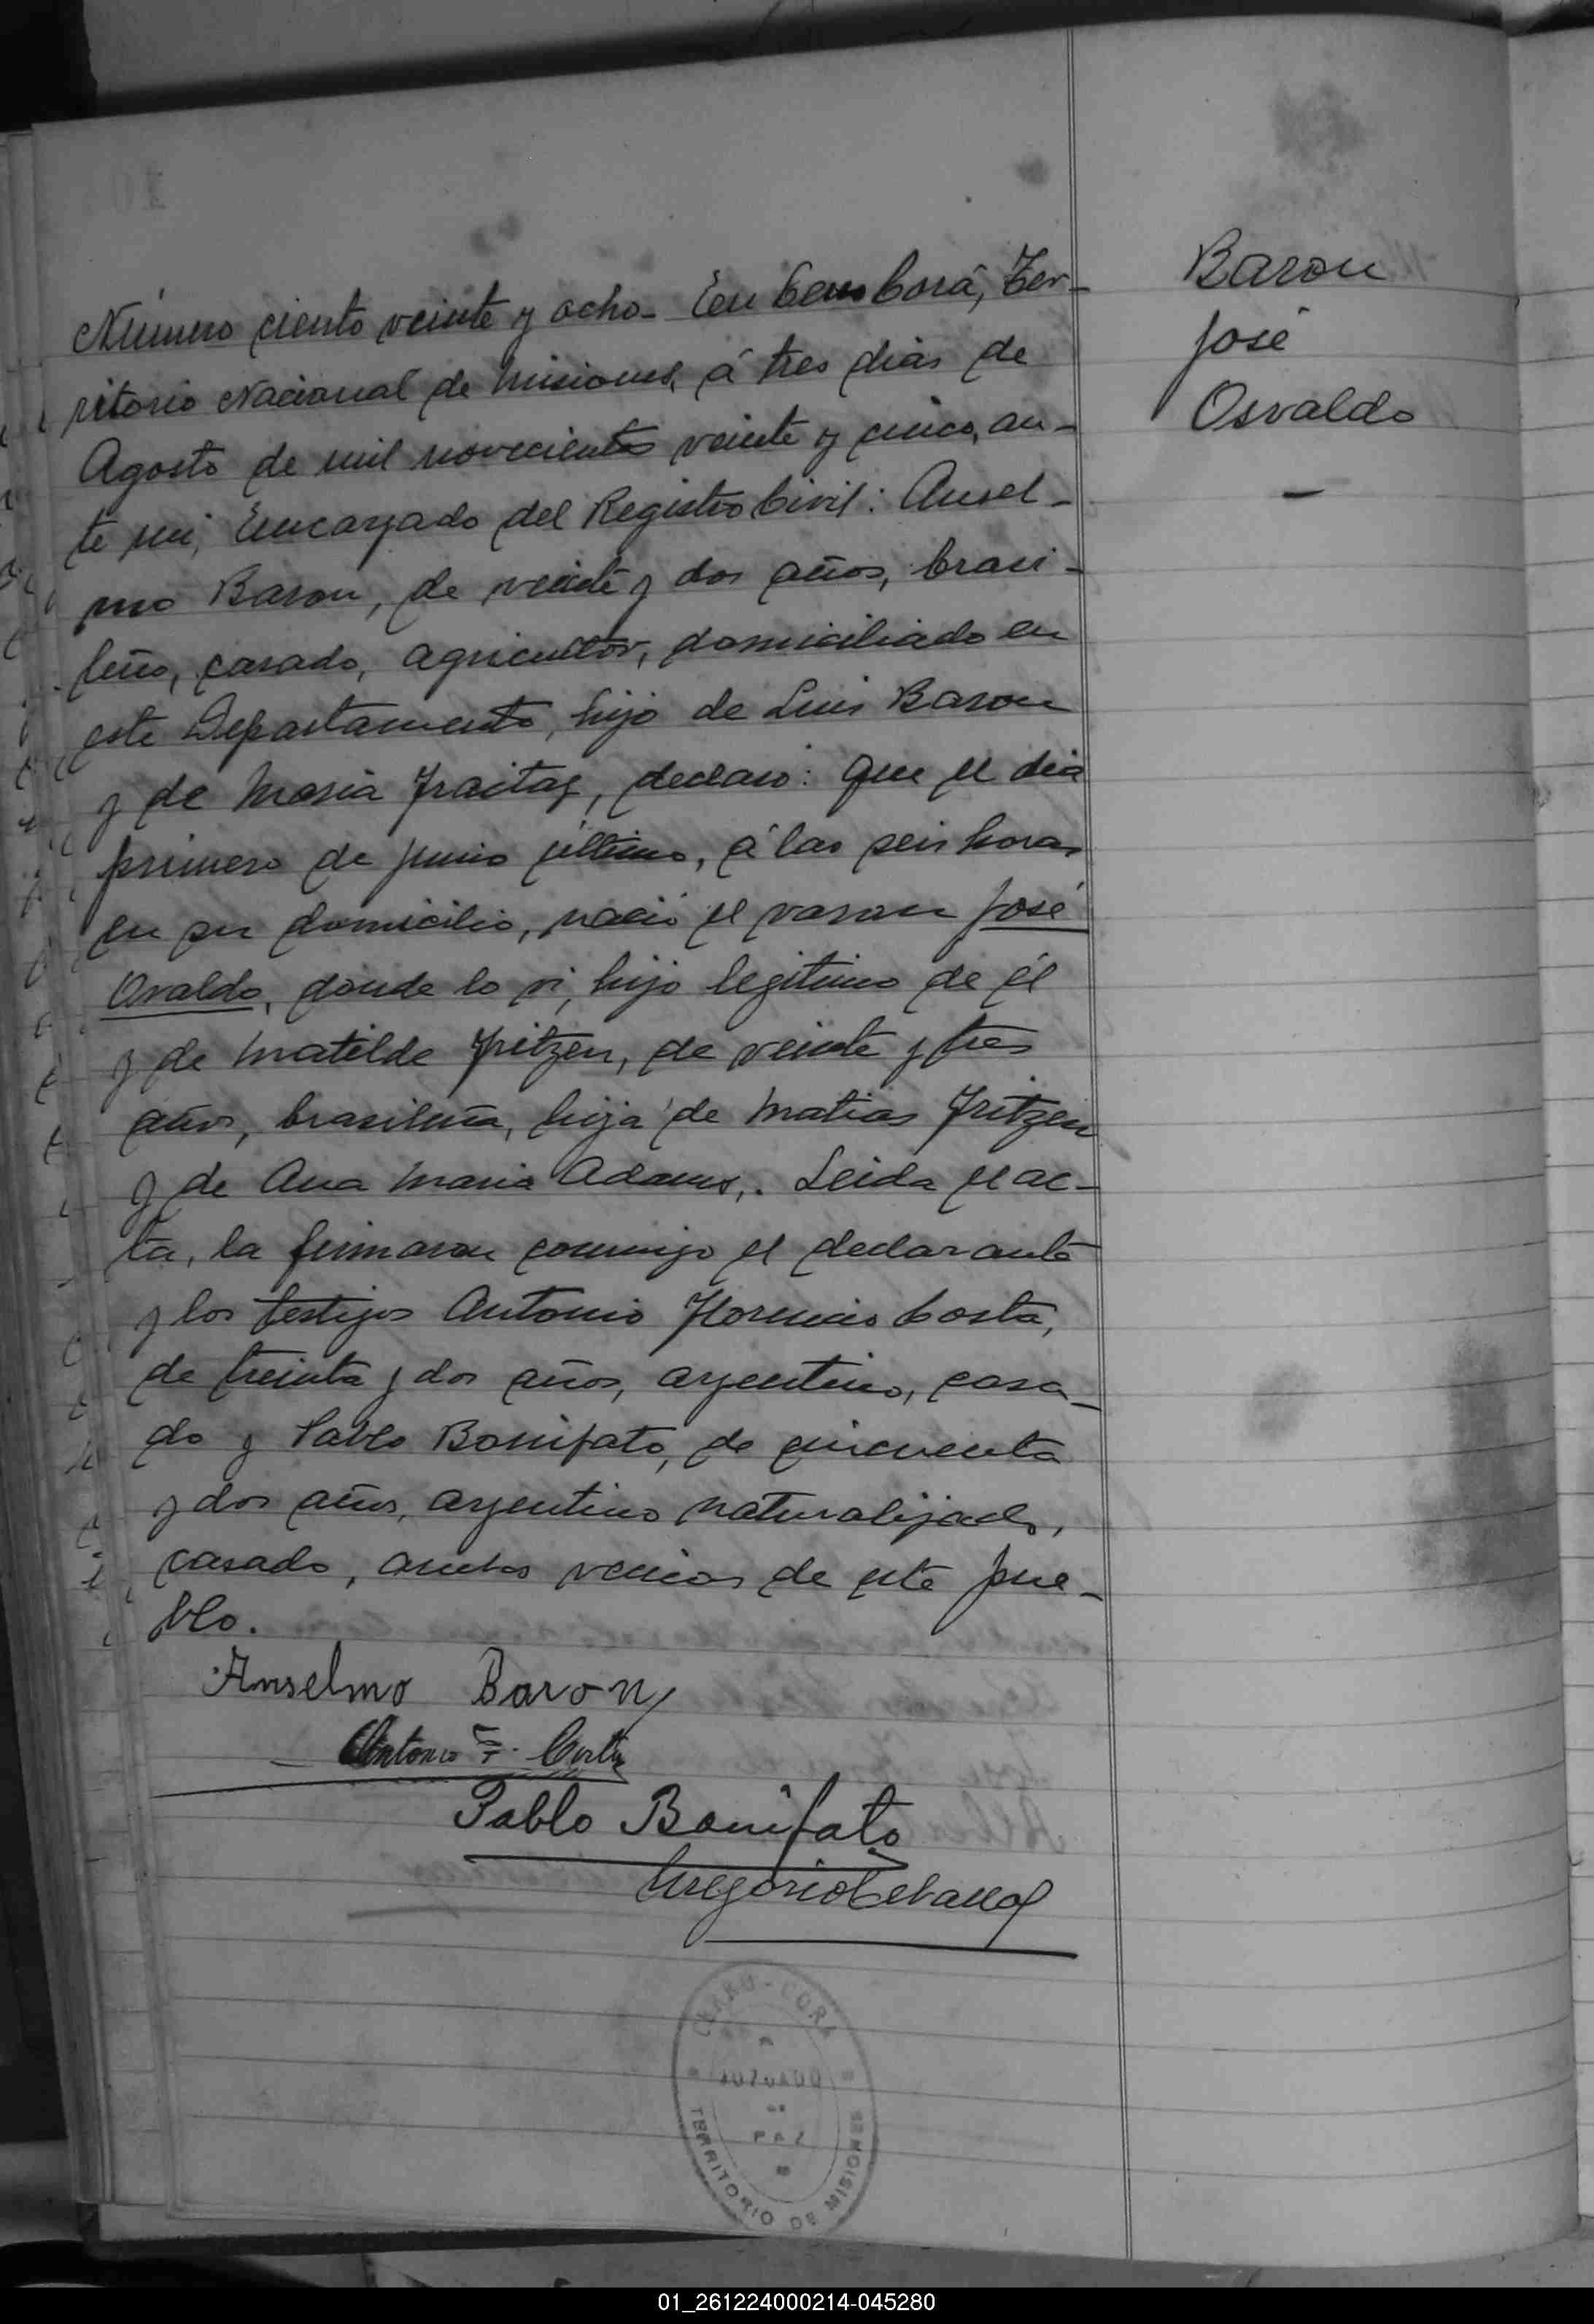 Baron
José
Osvaldo
Número ciento veinte y ocho- En Cerro Corá, Ter-
ritorio Nacional de Misiones, á tres dias de
Agosto de mil novecientos veinte y cinco, an-
te mi, Encargado del Registro Civil: Ansel-
mo Baron, de veinte y dos años, brasi-
leño, casado, agricultor, domiciliado en
este Departamento, hijo de Luis Baron
y de Maria Fraitag, declaró: Que el dia
primero de junio último, á las seis horas
en su domicilio, nació el varon José
Osvaldo, donde lo vi, hijo legitimo de él
y de Matilde Fritzen, de veinte y tres
años, brasileña, hija de Matias Fritzen
y de Ana Maria Adams,. Leida el ac-
ta, la firmaron conmigo el declarante
y los testigos Antonio Florencio Costa,
de treinta y dos años, argentino, casa-
do y Pablo Bonifato, de cincuenta
y dos años, argentino naturalizado,
casado, ambos vecinos de este pue-
blo.
Anselmo Baron
Antonio F. Costa
Pablo Bonifato
Gregorio Ceballos
CERRO-CORA
JUZGADO
DE
PAZ
TERRITORIO DE MISIONES
01_261224000214-045280